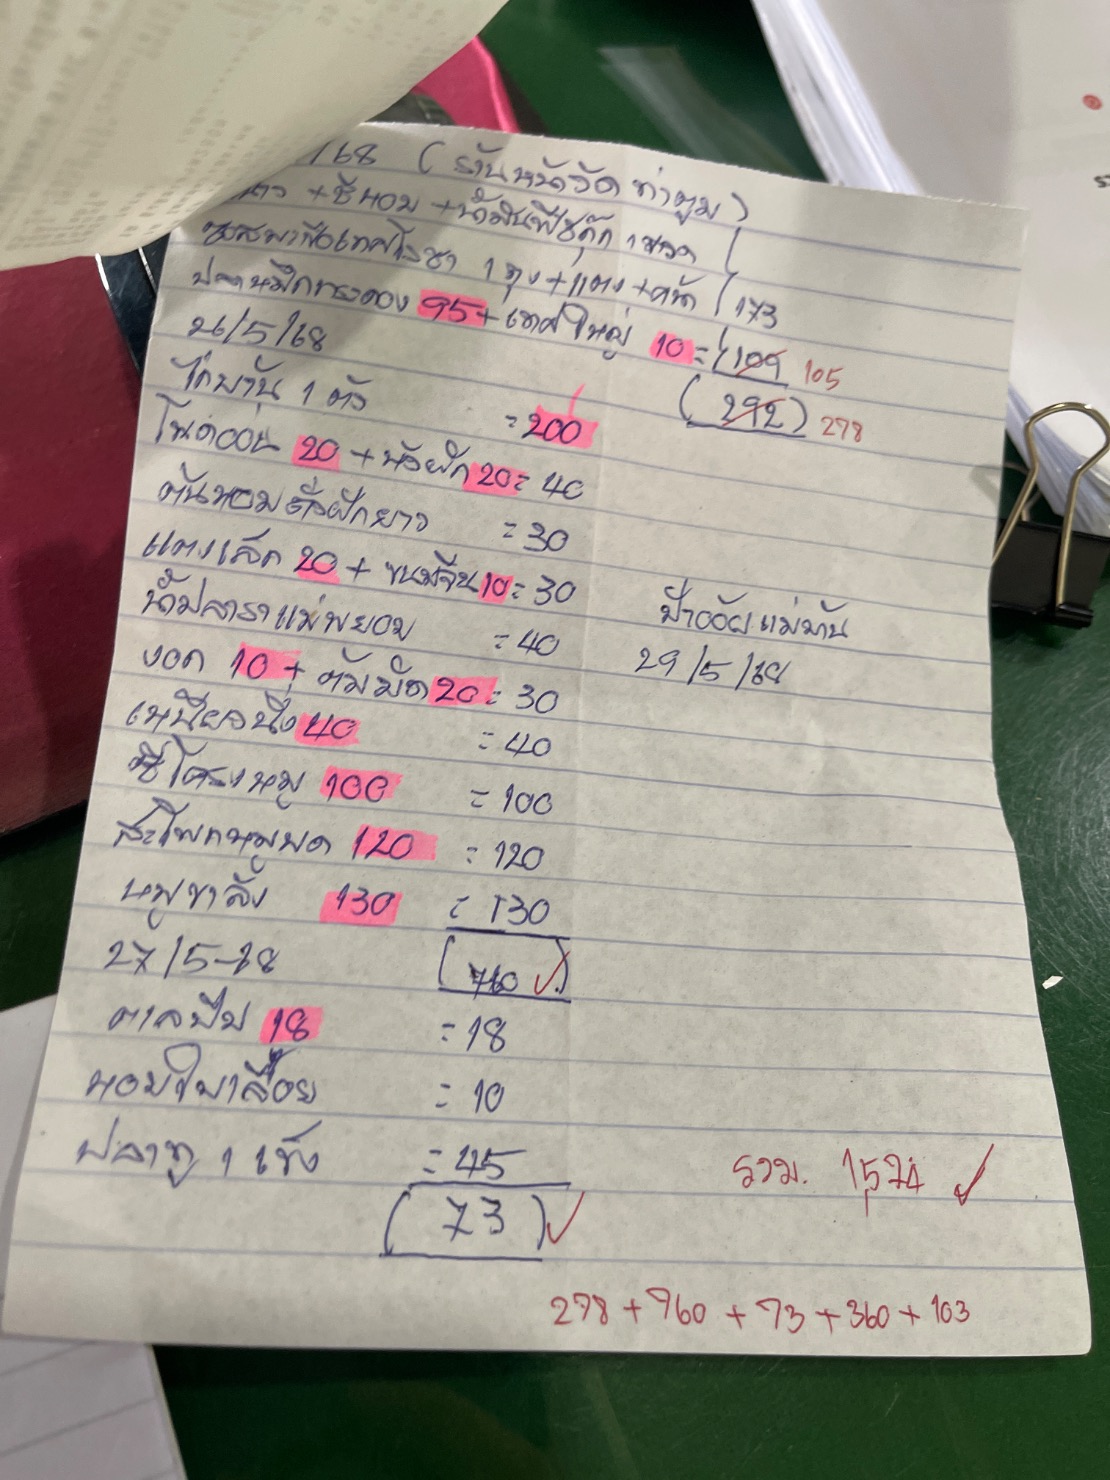 /68 (ร้านหน้าวัด ท่าตูม)
+ ชีหอม + น้ำมันพืชกุ๊ก 1 ขวด
1 ถุง + แตง + 173
ปลาหมึกกระดอง 95 + ใหญ่ 10 = 109 105
(292) 278
26/5/68
ไก่บ้าน 1 ตัว = 200
20 + บัวฝัก 20 = 40
ต้นหอม ถั่วฝักยาว = 30
แตงเล็ก 20 + ขนมจีน 10 = 30
น้ำปลาราแม่พยอม = 40
งอก 10 + ต้ม มัด 20 = 30
เหนียวนึ่ง 40 = 40
ซี่โครงหมู 100 = 100
สะโพกหมูบด 120 = 120
หมู 130 = 130
(760)
27/5-68
ตาลปีป 18 = 18
หอม = 10
ปลาทู 1 เข่ง = 45
(73)
ป้าอ้อยแม่บ้าน
29/5/68
รวม. 1,574
278 + 760 + 73 + 360 + 103